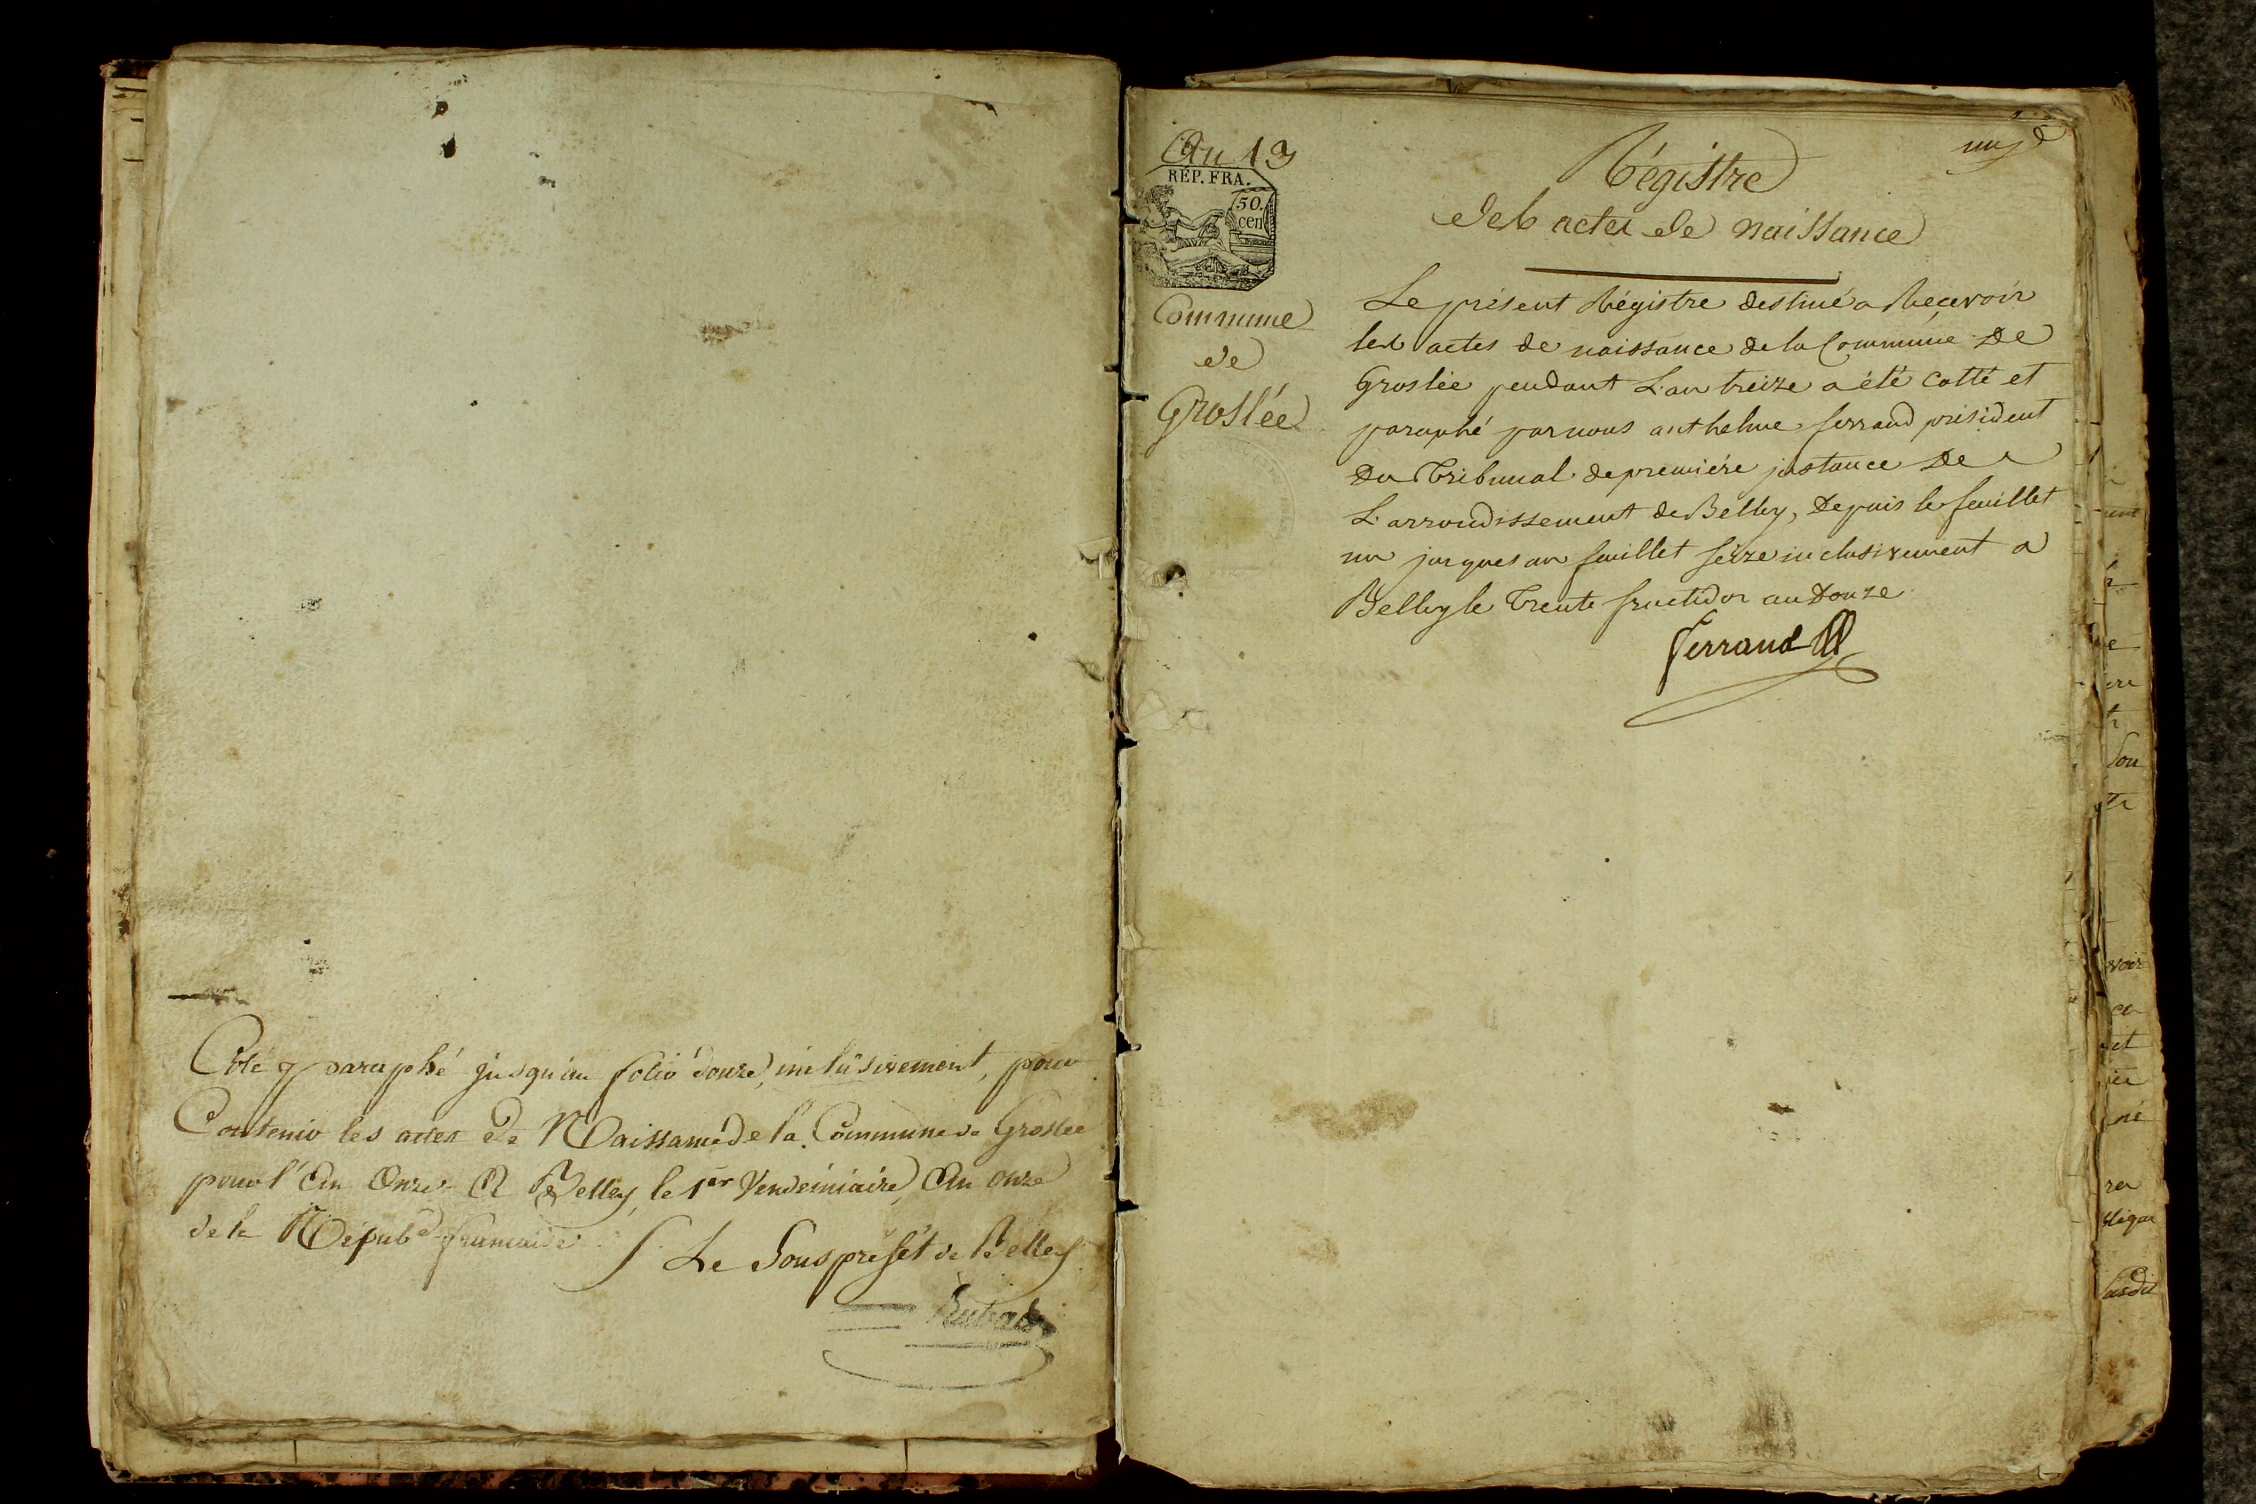 Coté & paraphé jusqu'au folio douze, inclusivement, pour
Contenir les actes de Naissance de la Commune de Groslée
pour l'An Onze. A Belley, le 1er Vendemiaire, An onze
de la Répub.e française.
Le Sous préfét de Belley
un
An 13
RÉP. FRA.
50.
cen
Commune
de
Groslée
Régistre
des actes de naissance
Le présent Régistre destiné a Recevoir
les actes de naissance de la Commune De
Groslée pendant L'an treize a été cotté et
paraphé par nous anthelme ferrand président
Du Tribunal de premiére jnstance De
L'arrondissement de Belley, Depuis le feuillet
un jusques au feuillet seize inclusivement a
Belley le Trente fructidor an Douze
ferrand